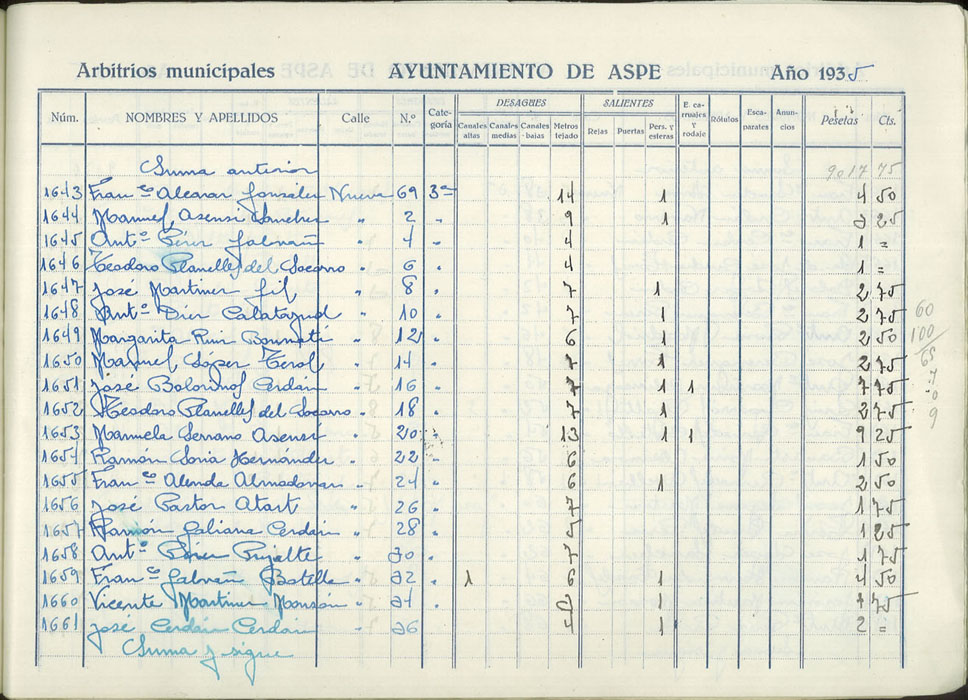 Arbitrios municipales AYUNTAMIENTO DE ASPE Año 1935
Núm. NOMBRES Y APELLIDOS Calle N.º Cate-goría DESAGÜES Canales altas Canales medias Canales bajas Metros tejado SALIENTES Rejas Puertas Pers. y esteras E. ca-rruajes y rodaje Rótulos Esca-parates Anun-cios Pesetas Cts.
Suma anterior 9017 75
1643 Fran.co Alcaraz González Nueva 69 3ª 14 1 4 50
1644 Manuel Asensi Sánchez " 2 " 9 1 2 25
1645 Ant.º Pérez Galvañ " 4 " 4 1 =
1646 Teodoro Planelles del Socorro " 6 " 4 1 =
1647 José Martínez Gil " 8 " 7 1 2 75
1648 Ant.º Díez Calatayud " 10 " 7 1 2 75
1649 Margarita Ruiz " 12 " 6 1 2 50
1650 Manuel López Terol " 14 " 7 1 2 75
1651 José Cerdán " 16 " 7 1 1 7 75
1652 Teodoro Planelles del Socorro " 18 " 7 1 2 75
1653 Manuela Serrano Asensi " 20 " 13 1 1 9 25
1654 Ramón Soria Hernández " 22 " 6 1 50
1655 Fran.co Almodovar " 24 " 6 1 2 50
1656 José Pastor " 26 " 7 1 75
1657 Ramón Galiana Cerdán " 28 " 5 1 25
1658 Ant.º Pérez Pujalte " 30 " 7 1 75
1659 Fran.co Galvañ Botella " 32 " 1 6 1 4 50
1660 Vicente Martínez Monzón " 34 " 1 75
1661 José Cerdán Cerdán " 36 4 1 2 =
Suma y sigue
60
100